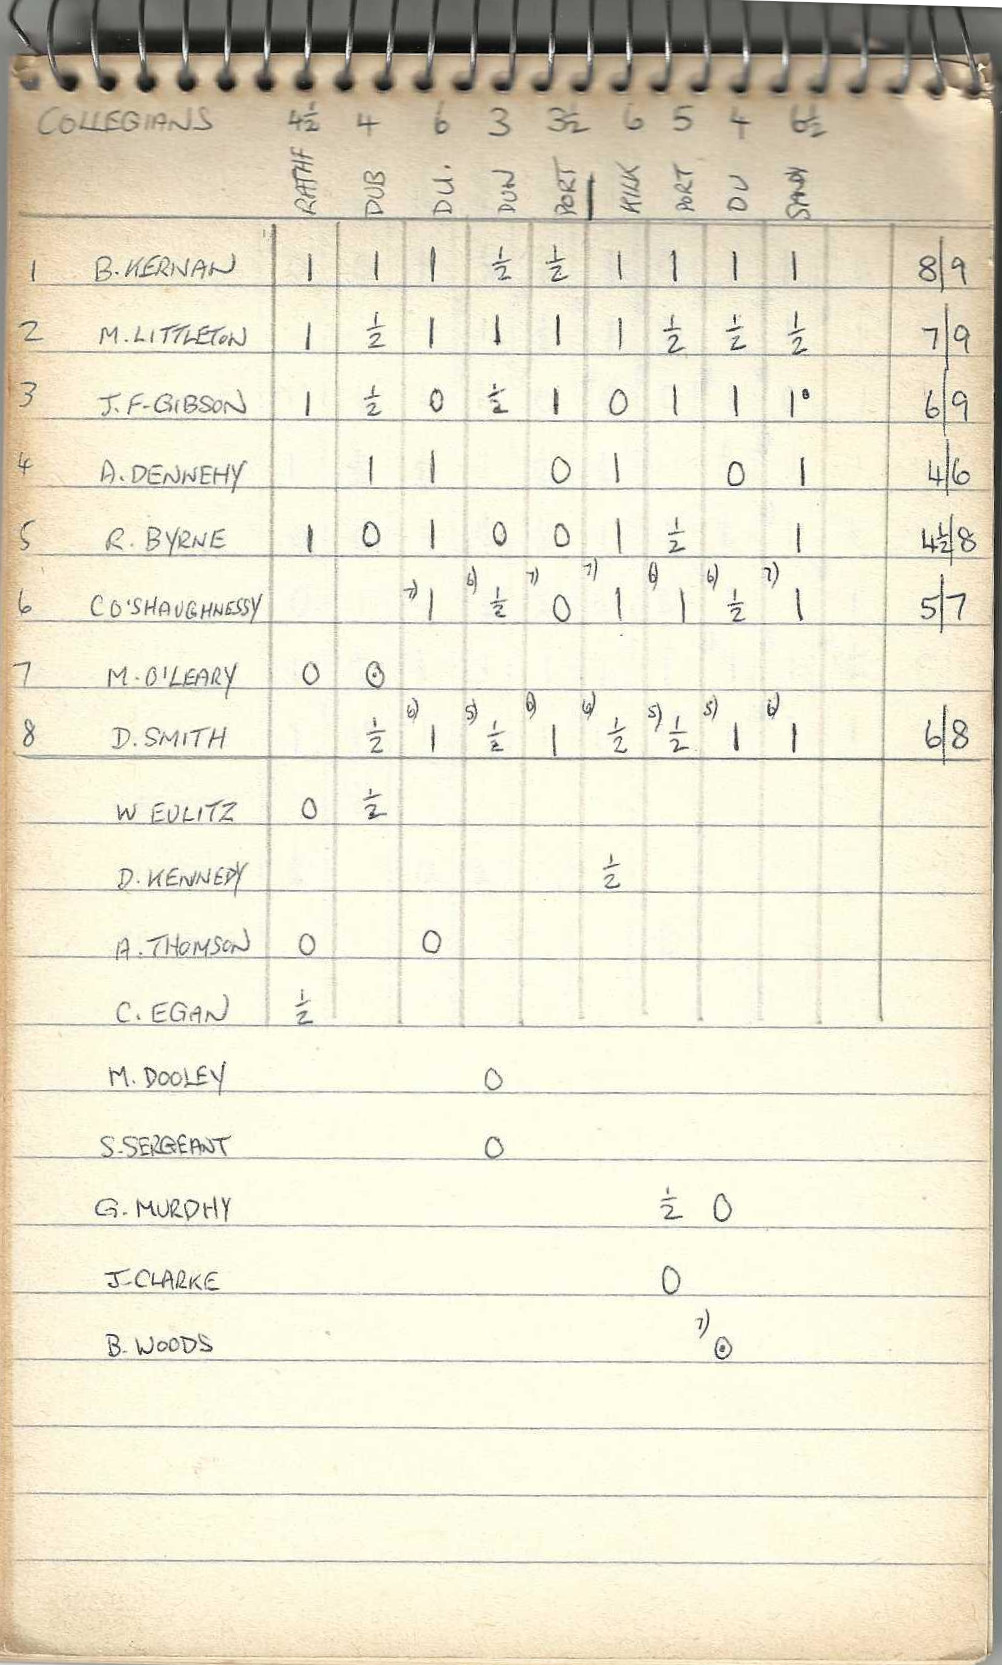 COLLEGIANS 4½ 4 6 3 3½ 6 5 4 6½
RATHF DUB D.U. DUN PORT KILK PORT DU SANDY
1 B. KERNAN 1 1 1 ½ ½ 1 1 1 1 8/9
2 M. LITTLETON 1 ½ 1 1 1 1 ½ ½ ½ 7/9
3 J. F-GIBSON 1 ½ 0 ½ 1 0 1 1 1 6/9
4 A. DENNEHY 1 1 0 1 0 1 4/6
5 R. BYRNE 1 0 1 0 0 1 ½ 1 4½/8
6 C O'SHAUGHNESSY 7) 1 6) ½ 7) 0 7) 1 6) 1 6) ½ 7) 1 5/7
7 M. O'LEARY 0 0
8 D. SMITH ½ 6) 1 5) ½ 6) 1 6) ½ 5) ½ 5) 1 6) 1 6/8
W EULITZ 0 ½
D. KENNEDY ½
A. THOMSON 0 0
C. EGAN ½
M. DOOLEY 0
S. SERGEANT 0
G. MURPHY ½ 0
J. CLARKE 0
B. WOODS 7) 0